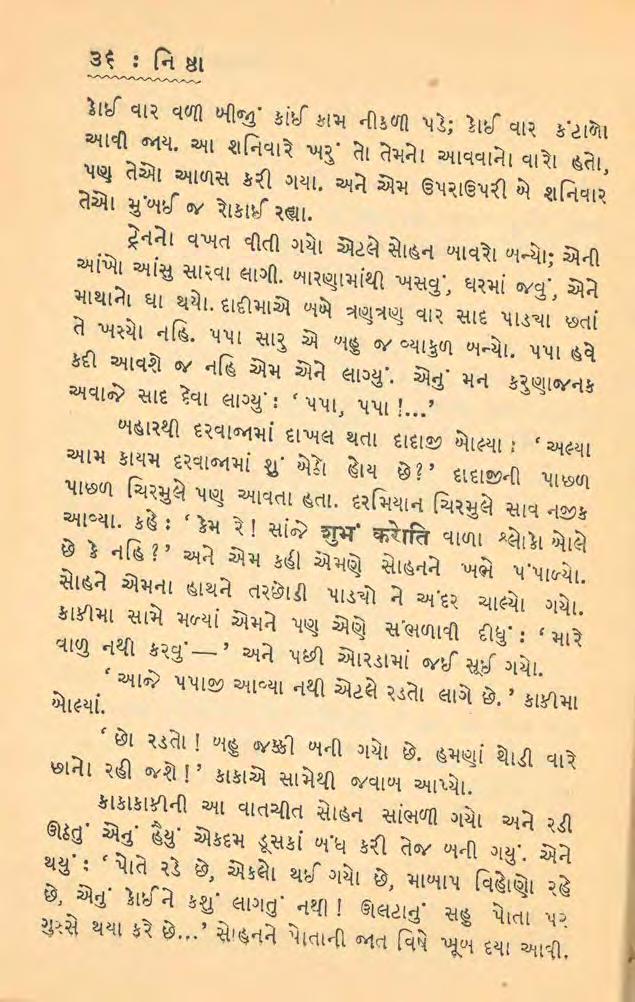 ૩૬ : નિ ષ્ઠા
કોઈ વાર વળી બીજું કાંઈ કામ નીકળી પડે; કોઈ વાર કંટાળો
આવી જાય. આ શનિવારે ખરું તો તેમનો આવવાનો વારો હતો,
પણ તેઓ આળસ કરી ગયા. અને એમ ઉપરાઉપરી બે શનિવાર
તેઓ મુંબઈ જ રોકાઈ રહ્યા.
ટ્રેનનો વખત વીતી ગયો એટલે સોહન બાવરો બન્યો; એની
આંખો આંસુ સારવા લાગી. બારણામાંથી ખસવું, ઘરમાં જવું, એને
માથાનો ઘા થયો. દાદીમાએ બબે ત્રણત્રણ વાર સાદ પાડચા છતાં
તે ખસ્યો નહિ. પપા સારુ એ બહુ જ વ્યાકુળ બન્યો. પપા હવે
કદી આવશે જ નહિ એમ એને લાગ્યું. એનું મન કરુણાજનક
અવાજે સાદ દેવા લાગ્યું : ‘ પપા, પપા !...’
બહારથી દરવાજામાં દાખલ થતા દાદાજી બોલ્યા : ‘ અલ્યા
આમ કાયમ દરવાજામાં શું બેઠો હોય છે?’ દાદાજીની પાછળ
પાછળ ચિરમુલે પણ આવતા હતા. દરમિયાન ચિરમુલે સાવ નજીક
આવ્યા. કહે : ‘ કેમ રે ! સાંજે शुभं करोति વાળા શ્લોકો બોલે
છે કે નહિ ?’ અને એમ કહી એમણે સોહનને ખભે પંપાળ્યો.
સોહને એમના હાથને તરછોડી પાડચો ને અંદર ચાલ્યો ગયો.
કાકીમા સામે મળ્યાં એમને પણ એણે સંભળાવી દીધું : ‘ મારે
વાળુ નથી કરવું—’ અને પછી ઓરડામાં જઈ સૂઈ ગયો.
‘ આજે પપાજી આવ્યા નથી એટલે રડતો લાગે છે. ’ કાકીમા
બોલ્યાં.
‘ છો રડતો ! બહુ જક્કી બની ગયો છે. હમણાં થોડી વારે
છાનો રહી જશે !’ કાકાએ સામેથી જવાબ આપ્યો.
કાકાકાકીની આ વાતચીત સોહન સાંભળી ગયો અને રડી
ઊઠેતું એનું હૈયું એકદમ ડૂસકાં બંધ કરી તેજ બની ગયું. એને
થયું : ‘ પોતે રડે છે, એકલો થઈ ગયો છે, માબાપ વિહોણો રહે
છે, એનું કોઈને કશું લાગતું નથી ! ઊલટાનું સહુ પોતા પર
ગુસ્સે થયા કરે છે...’ સોહનને પોતાની જાત વિષે ખૂબ દયા આવી.